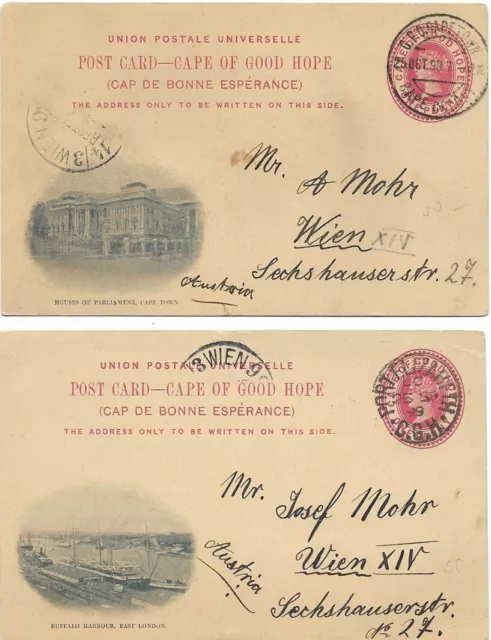 UNION POSTALE UNIVERSELLE
POST CARD—CAPE OF GOOD HOPE
(CAP DE BONNE ESPÉRANCE)
THE ADDRESS ONLY TO BE WRITTEN ON THIS SIDE.
G.P.O. CAPE TOWN
25 OCT. 98
CAPE COLONY
14/3 WIEN
Mr. A Mohr
Wien XIV
Sechshauserstr. 27.
Austria
HOUSES OF PARLIAMENT, CAPE TOWN.
UNION POSTALE UNIVERSELLE
3 WIEN 9
POST CARD—CAPE OF GOOD HOPE
(CAP DE BONNE ESPÉRANCE)
THE ADDRESS ONLY TO BE WRITTEN ON THIS SIDE.
C.G.H.
Mr. Josef Mohr
Wien XIV
50
Austria
Sechshauserstr.
No. 27.
BUFFALO HARBOUR, EAST LONDON.